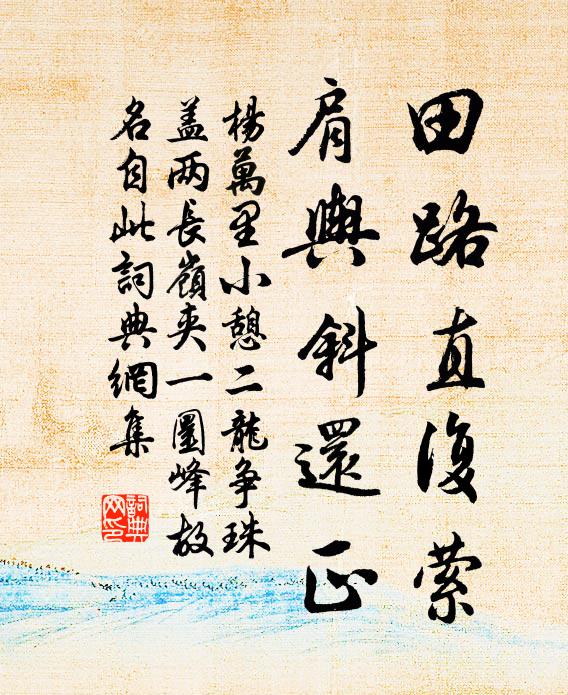 田路直復縈
肩輿斜還正
楊萬里小憩二龍爭珠
蓋两長嶺夾一圓峰故
名自此詞典網集
詞典
网印